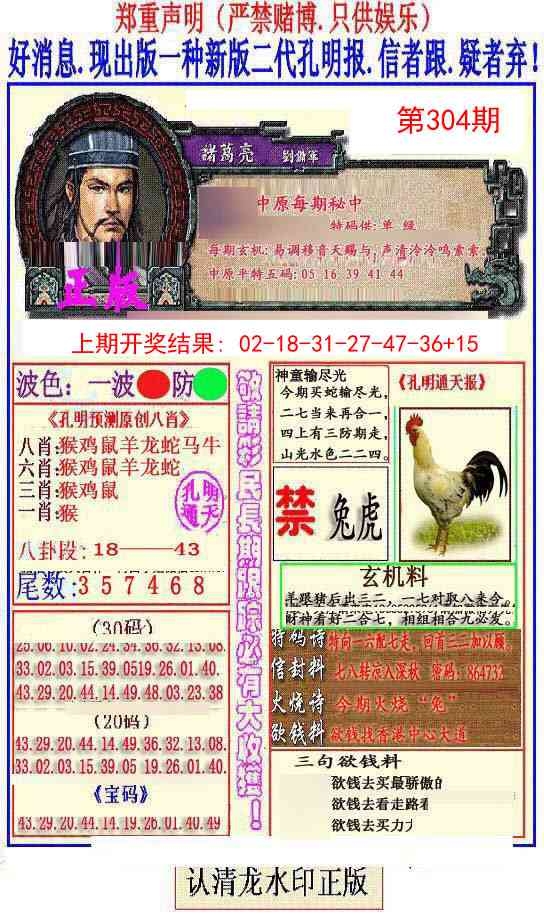 郑重声明（严禁赌博.只供娱乐）
好消息.现出版一种新版二代孔明报.信者跟.疑者弃!
第304期
諸葛亮 劉備軍
中原每期秘中
特码供:单 绿
每期玄机:易调移音天赐与,声清泠泠鸣索索.
中原平特五码:05 16 39 41 44
正版
上期开奖结果: 02-18-31-27-47-36+15
波色: 一波 防
《孔明预测原创八肖》
八肖:猴鸡鼠羊龙蛇马牛
六肖:猴鸡鼠羊龙蛇
三肖:猴鸡鼠
一肖:猴
孔明通天
八卦段: 18——43
尾数:3 5 7 4 6 8
(30码)
33.02.03.15.39.0519.26.01.40.
43.29.20.44.14.49.48.03.23.38
(20码)
43.29.20.44.14.49.36.32.13.08.
33.02.03.15.39.05 19.26.01.40.
《宝码》
43.29.20.44.14.19.26.01.40.49
敬請彩民長期跟踪必有大收獲！
神童输尽光
今期买蛇输尽光,
二七当来再合一,
四上有三防期走,
山光水色二二四。
《孔明通天报》
禁 兔虎
玄机料
羊跟猪后出三二，一七对取八来合
财神看好二合七，相组相合九必发。
特码诗 特向一六配七走，回首三三加以顾。
信封料 七八转应入深秋 密码：864732
火烧诗 今期火烧“兔”
欲钱料 欲钱找香港中心大道
三句欲钱料
欲钱去买最骄傲的
欲钱去看走路看
欲钱去买力
认清龙水印正版